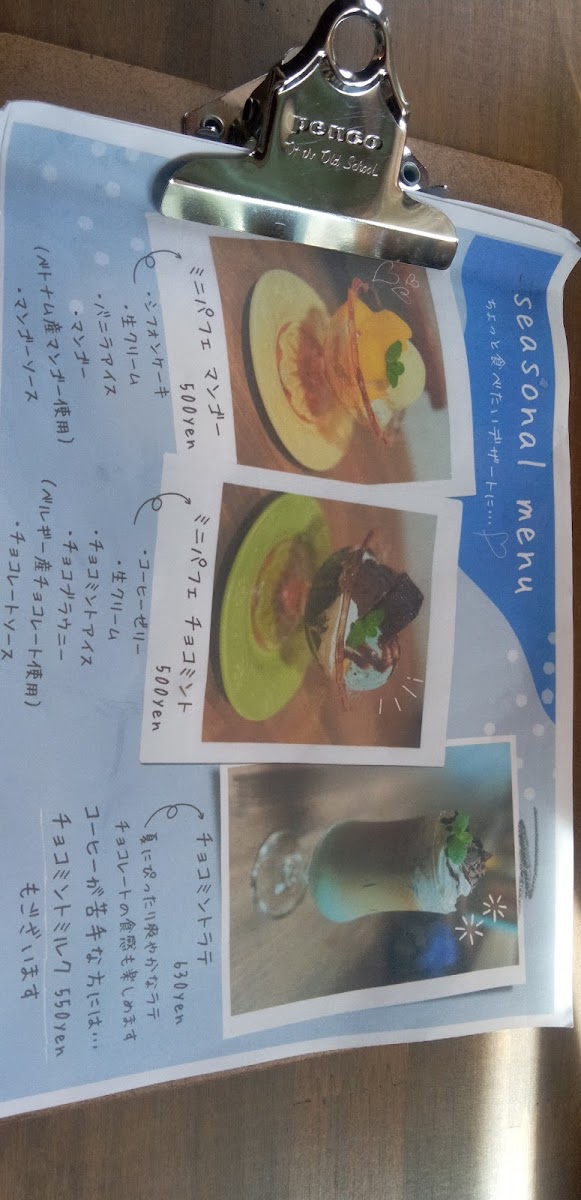 penco
In the Old School
seasonal menu
ちょっと食べたいデザートに…♡
ミニパフェ マンゴー
500yen
・シフォンケーキ
・生クリーム
・バニラアイス
・マンゴー
(ベトナム産マンゴー使用)
・マンゴーソース
ミニパフェ チョコミント
500yen
・コーヒーゼリー
・生クリーム
・チョコミントアイス
・チョコブラウニー
(ベルギー産チョコレート使用)
・チョコレートソース
チョコミントラテ
630yen
夏にぴったり爽やかなラテ
チョコレートの食感も楽しめます
コーヒーが苦手な方には…
チョコミントミルク 550yen
もございます